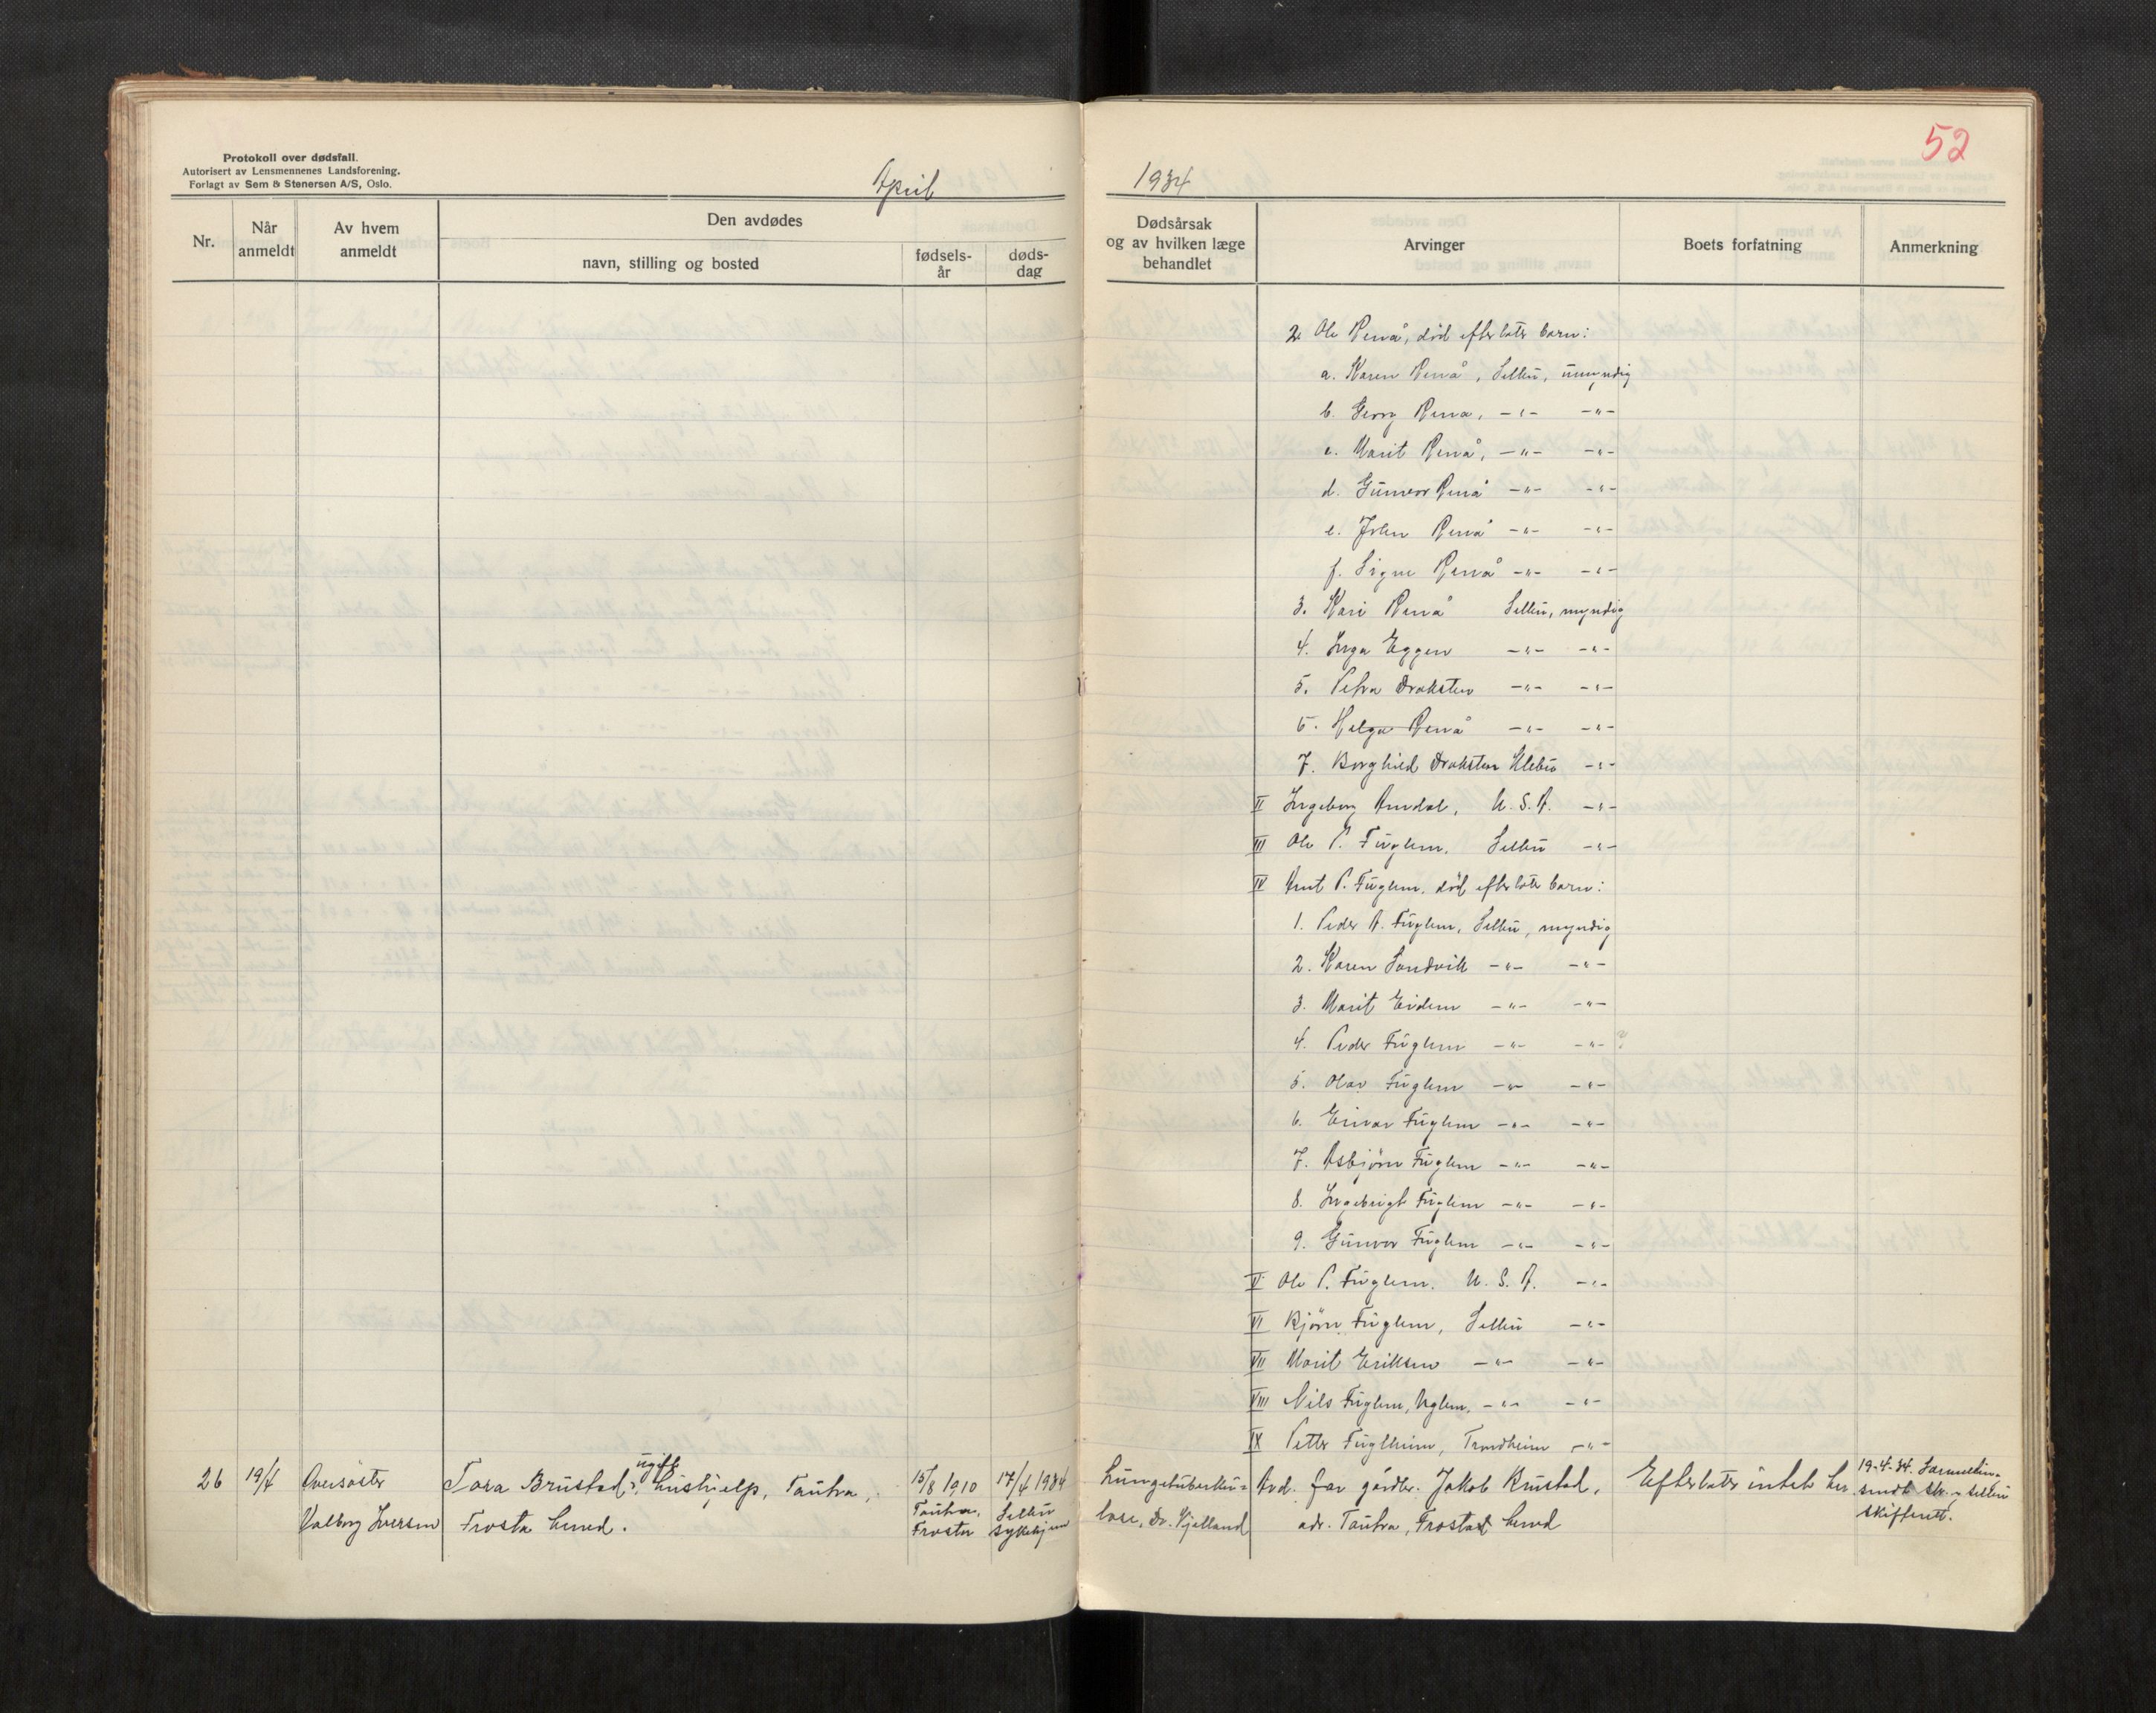 Protokoll over dødsfall.
Autorisert av Lensmennenes Landsforening.
Forlagt av Sem & Stenersen A/S, Oslo.
April
Nr.
Når anmeldt
Av hvem anmeldt
Den avdødes
navn, stilling og bosted
fødsels-
år
døds-
dag
26 19/4 Oversøster
Valborg Iversen
ugift
Tora Brustad, hushjelp, Tautra,
Frosta herred.
15/8 1910
Tautra,
Frosta
17/4 1934
Selbu
sykehjem
52
1934
Dødsårsak
og av hvilken læge
behandlet
Arvinger
Boets forfatning
Anmerkning
2. Ole Renå, död efterlater barn:
a. Karen Renå, Selbu, umyndig
b. Georg Renå, -"- -"-
c. Marit Renå, -"- -"-
d. Gunvor Renå -"- -"-
e. John Renå -"- -"-
f. Signe Renå -"- -"-
3. Kari Renå Selbu, myndig
4. Inga Eggen -"- -"-
5. Petra Draksten -"- -"-
6. Helga Renå -"- -"-
7. Borghild Draksten Klebu -"-
II Ingeborg Amdal, U.S.A. -"-
III Ole P. Fuglem. Selbu -"-
IV Arnt P. Fuglem, död efterlater barn:
1. Peder A. Fuglem, Selbu, myndig
2. Karen Sandvik -"- -"-
3. Marit Eidem -"- -"-
4. Peder Fuglem -"- -"- ?
5. Olav Fuglem -"- -"-
6. Einar Fuglem -"- -"-
7. Asbjörn Fuglem -"- -"-
8. Ingebrigt Fuglem -"- -"-
9. Gunvor Fuglem -"- -"-
V Ole P. Fuglem. U.S.A. -"-
VI Bjørn Fuglem, Selbu -"-
VII Marit Eriksen -"- -"-
VIII Nils Fuglem, Uglem, -"- -"-
IX Petter Fuglheim, Trondheim -"-
Lungetuberku=
lose, Dr. Kjelland
Avd. far gårdbr. Jakob Brustad,
adr. Tautra, Frosta herred
Efterlater intet her.
19-4-34.
sendt Selbu
skifterett.